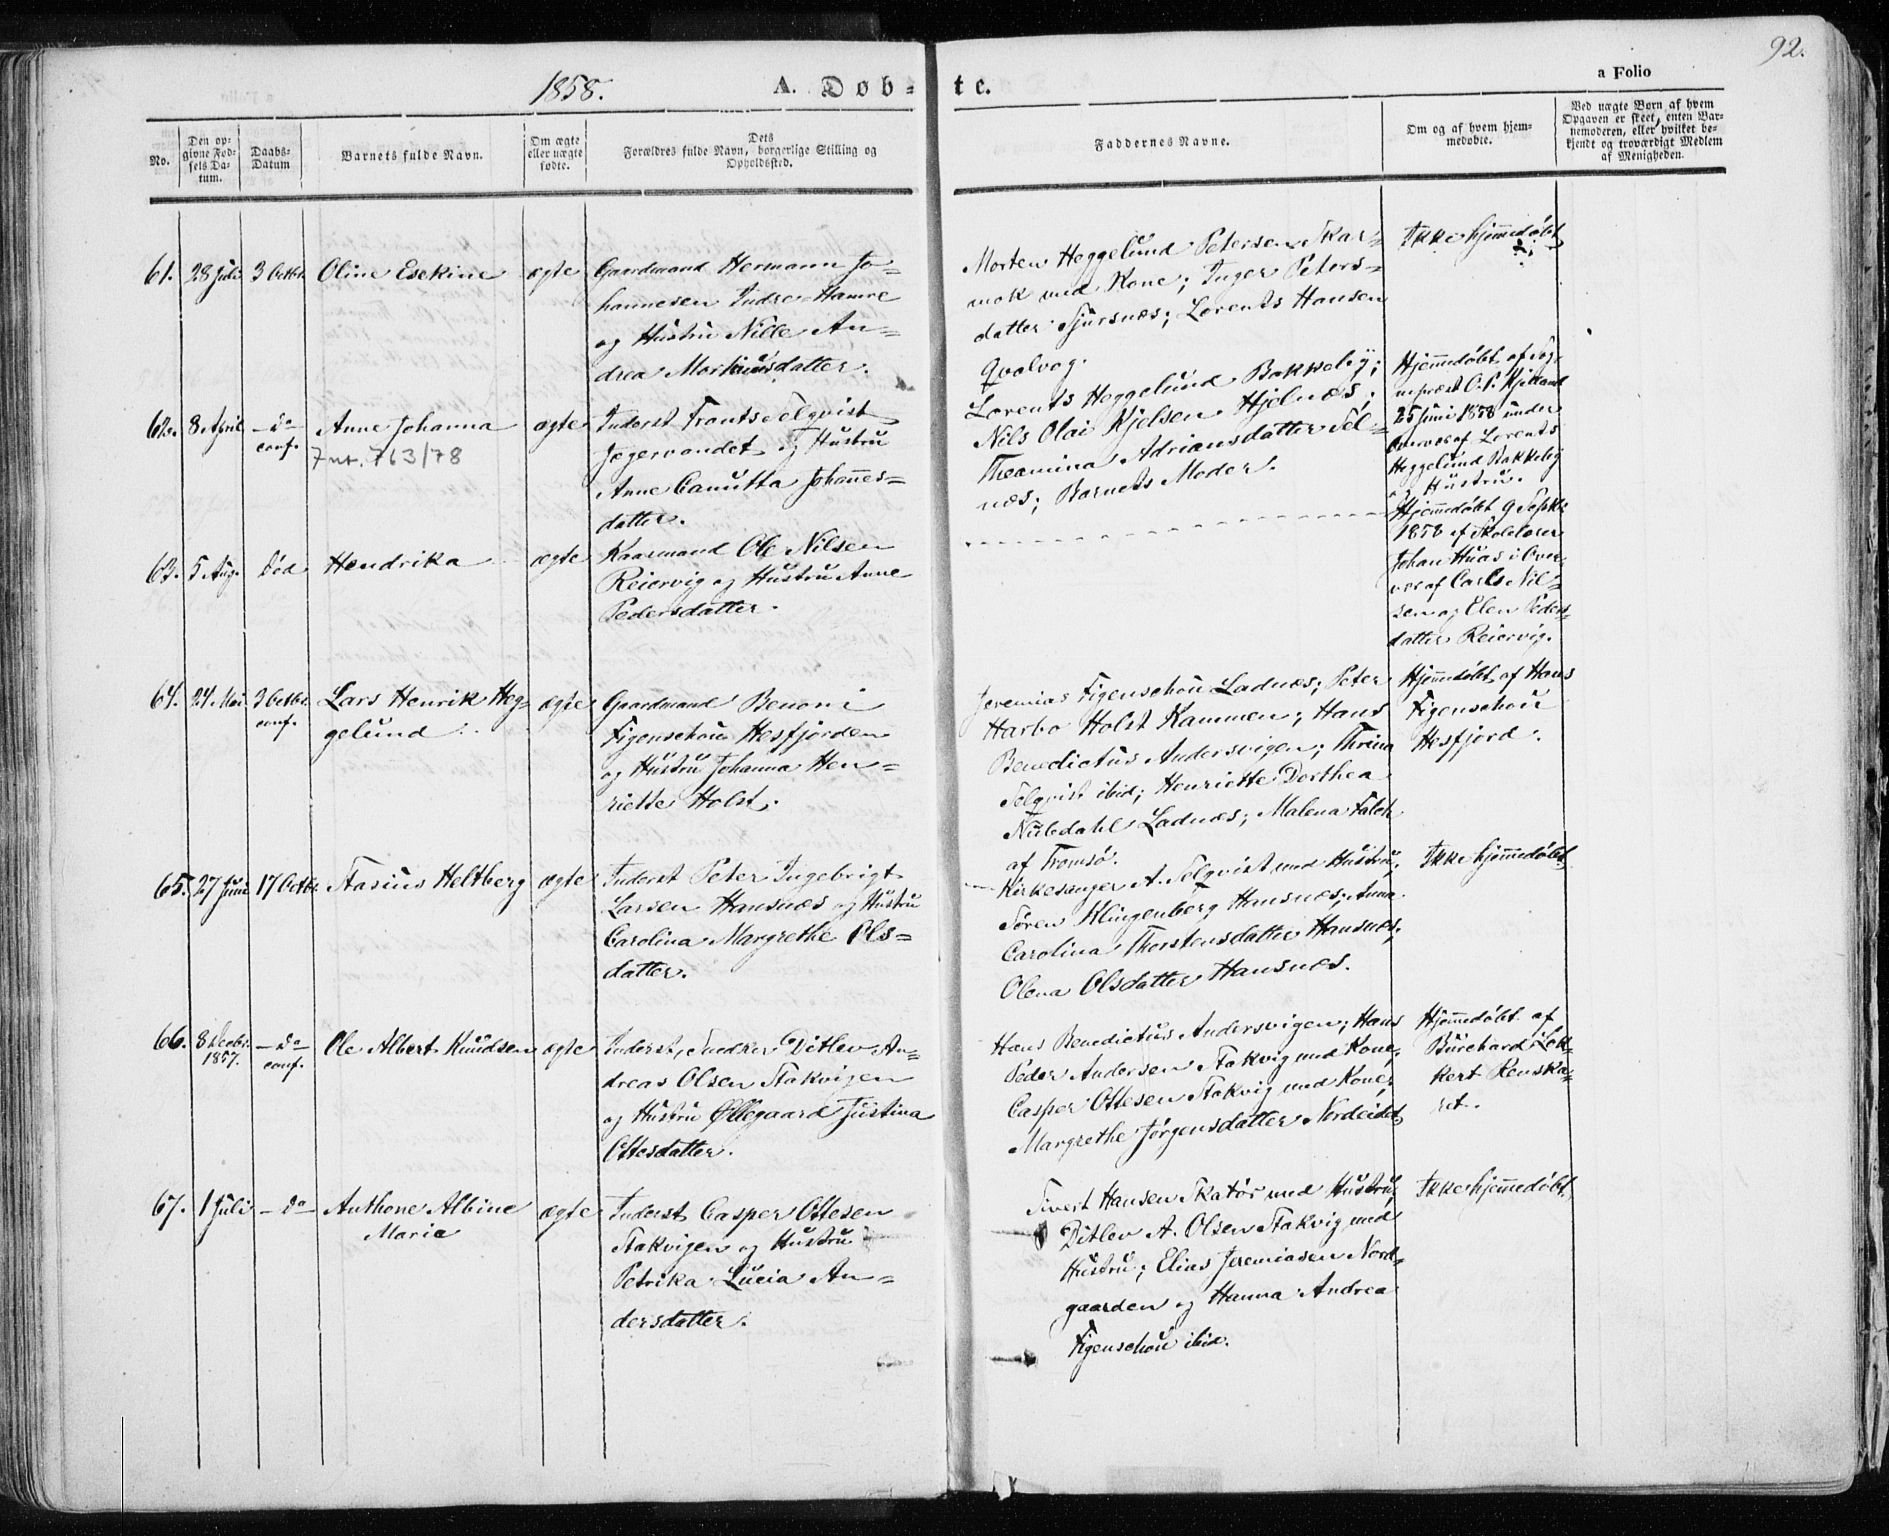 92.
1858.
A. Døb- te.
a Folio
No.
Den op-
givne Fød-
sels Da-
tum.
Daabs-
Datum
Barnets fulde Navn.
Om ægte
eller uægte
fødte.
Dets
Forældres fulde Navn, borgerlige Stilling og
Opholdssted.
Faddernes Navne.
Om og af hvem hjem-
medøbte.
Ved uægte Børn af hvem
Opgaven er skeet, enten Bar-
nemoderen, eller hvilket be-
kjendt og troværdigt Medlem
af Menigheden.
61. 28 Juli 3 Octbr. Oline Esekine ægte
Gaardmand Hermann Jo-
hannesen Indre-Hamre
og Hustru Nille An-
drea Mortinusdatter.
Morten Heggelund Petersen Skar-
mok med Kone; Inger Peters-
datter Sjursnæs; Lorents Hansen
Qvalvog.
Ikke hjemmedøbt
62. 8 April - do
conf.
Anne Johanna
Int. 763/78
ægte
Inderst Frants Felqvist
Jægervandet og Hustru
Anne Canutta Johannes-
datter.
Lorents Heggelund Bakkeby;
Nils Olai Kjelsen Hjelnæs;
Theamina Adriansdatter Sel-
næs; Barnets Moder.
Hjemmedøbt af Sog-
nepræst O. S. Kjelland
25 Juni 1858 under
Overvær af Lorents
Heggelund Bakkeby
og Hustru.
63. 5 Aug. Død Hendrika ægte
Kaarmand Ole Nilsen
Reiervig og Hustru Anne
Pedersdatter.
Hjemmedøbt 9 Septbr
1858 af Skolelærer
Johan Huas i Over-
vær af Carl Nil-
sen og Elen Peders-
datter Reiervig.
64. 24 Mai 3 Octbr.
conf.
Lars Henrik Heg-
gelund
ægte
Gaardmand Benoni
Figenschou Hesfjorden
og Hustru Johanna Hen-
riette Holst.
Jeremias Figenschou Ladnæs; Peter
Harbo Holst Kammen; Hans
Benedictus Andersvigen; Thrina
Felqvist ibid; Henriette Dorthea
Nubdahl Ladnæs; Malena Falch
af Tromsø.
Hjemmedøbt af Hans
Figenschou
Hesfjord.
65. 27 Juni 17 Octbr. Stasius Heltberg ægte
Inderst Peter Ingebrigt
Larsen Hansnæs og Hustru
Carolina Margrethe Ols-
datter.
Kirkesanger A. Felqvist med Hustru;
Søren Klingenberg Hansnæs; Anna
Carolina Thorstensdatter Hansnæs;
Olena Olsdatter Hansnæs.
Ikke hjemmedøbt
66. 8 Decbr.
1857.
- do
conf.
Ole Albert Knudsen ægte
Inderst, Snedker Ditlev An-
dreas Olsen Stakvigen
og Hustru Øllegaard Justina
Ottesdatter.
Hans Benedictus Andersvigen; Hans
Peder Andersen Stakvig med Kone;
Casper Ottesen Stakvig med Kone;
Margrethe Jørgensdatter Nordeidet
Hjemmedøbt af
Burchard Lok-
kert Renska-
ret.
67. 1 Juli - do
Anthone Albine
Marie
ægte
Inderst Casper Ottesen
Stakvigen og Hustru
Petrika Lucia An-
dersdatter.
Sivert Hansen Skatør med Hustru;
Ditlev A. Olsen Stakvig med
Hustru; Elias Jeremiasen Nord-
gaarden og Hanna Andrea
Figenschou ibid.
Ikke hjemmedøbt